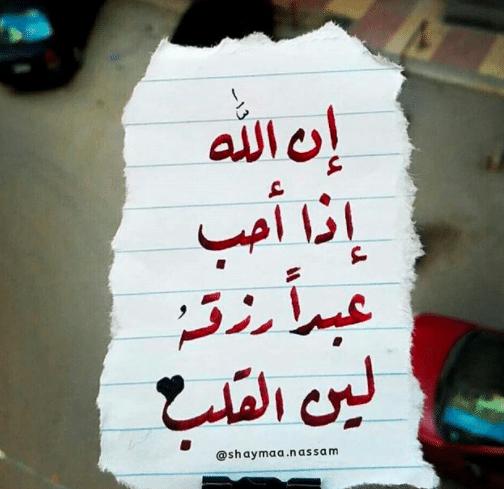 إن اللّٰه
إذا أحب
عبداً رزقهُ
لين القلب
@shaymaa.nassam